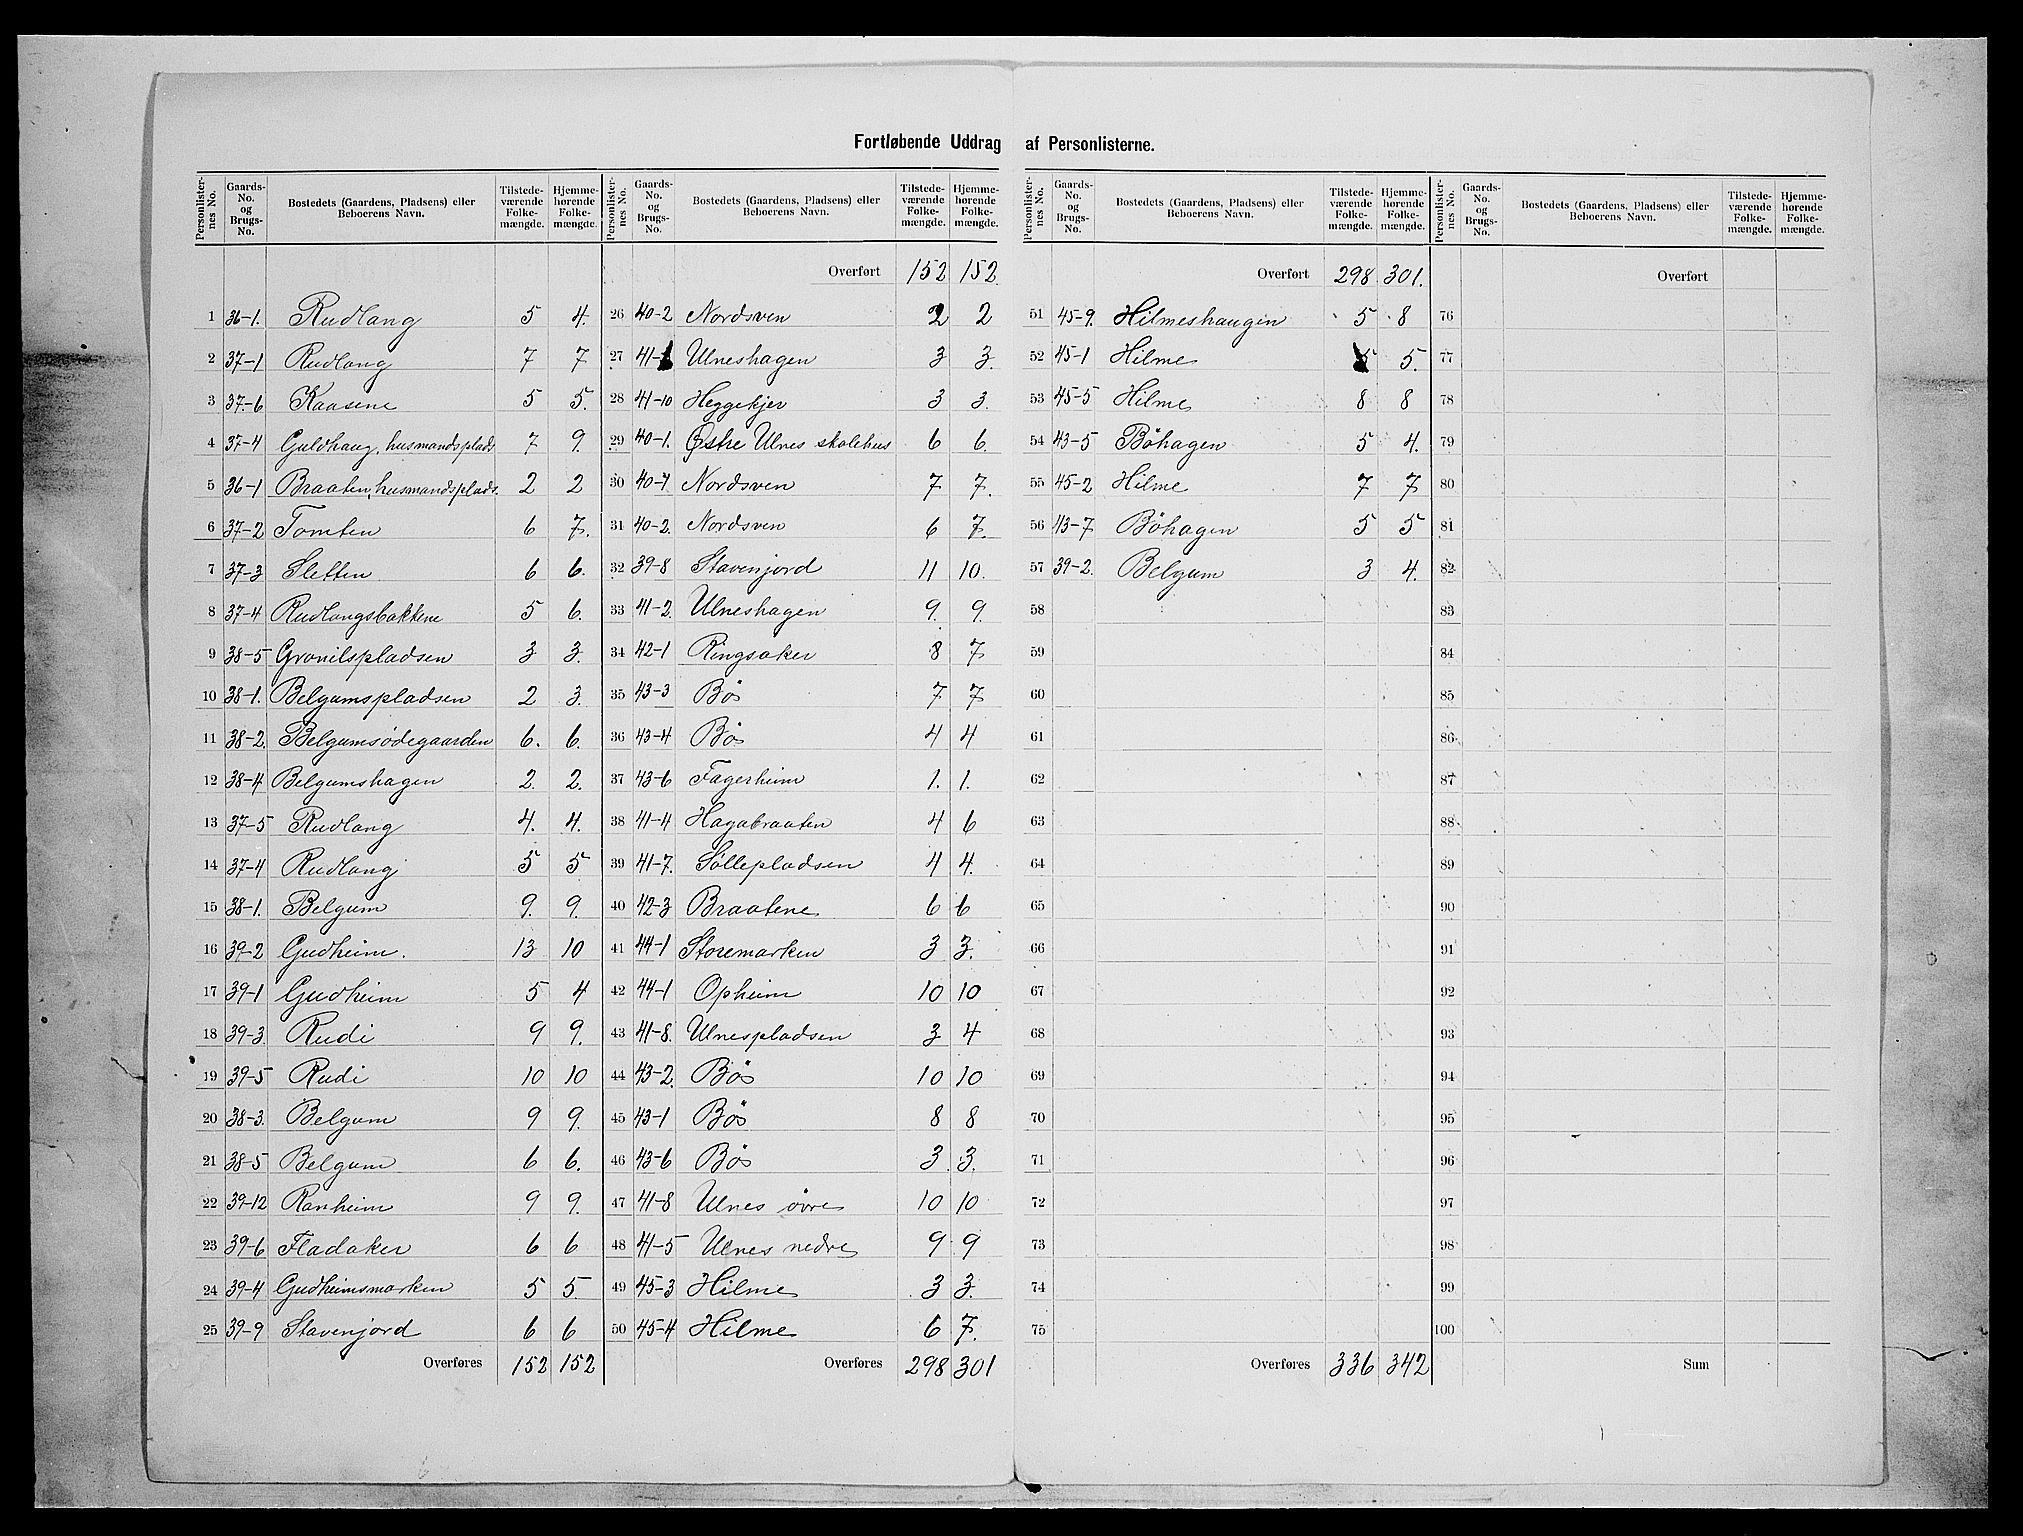 Fortløbende Uddrag af Personlisterne.
Personlisternes No. Gaards-No. og Brugs-No. Bostedets (Gaardens, Pladsens) eller Beboerens Navn. Tilstedeværende Folkemængde. Hjemmehørende Folkemængde.
1 36-1. Rudlang 5 4.
2 37-1 Rudlang 7 7
3 37-6 Kaasene 5 5.
4 37-4 Guldhaug, husmandsplads 7 9.
5 36-1 Braaten, husmandsplads. 2 2
6 37-2 Tomten 6 7.
7 37-3 Sletten 6 6.
8 37-4 Rudlangsbakkene 5 6.
9 38-5 Gronilspladsen 3 3.
10 38-1. Belgumspladsen 2 3.
11 38-2. Belgumsödegaarden 6. 6.
12 38-4 Belgumshagen 2. 2.
13 37-5 Rudlang 4. 4.
14 37-4 Rudlang 5 5
15 38-1. Belgum 9. 9.
16 39-2 Gudheim. 13 10
17 39-1 Gudheim 5 4
18 39-3. Rudi 9 9.
19 39-5 Rudi 10 10
20 38-3. Belgum 9 9.
21 38-5 Belgum 6 6.
22 39-12 Ranheim 9 9.
23 39-6 Fladaker 6 6
24 39-4 Gudheimsmarken 5 5.
25 39-9 Stavenjord 6 6
Overføres 152 152
Personlisternes No. Gaards-No. og Brugs-No. Bostedets (Gaardens, Pladsens) eller Beboerens Navn. Tilstedeværende Folkemængde. Hjemmehørende Folkemængde.
Overført 152 152.
26 40-2 Nordsven 2 2
27 41- Ulneshagen 3 3.
28 41-10 Heggekjer 3 3.
29 40-1. Østre Ulnes skolehus 6 6.
30 40-1 Nordsven 7 7.
31 40-2. Nordsven 6 7.
32 39-8 Stavenjord 11 10.
33 41-2. Ulneshagen 9. 9.
34 42-1 Ringsaker 8 7
35 43-3 Bös 7. 7
36 43-4 Bös 4 4
37 43-6 Fagerheim 1. 1.
38 41-4 Hagabraaten 4 6
39 41-7. Söllepladsen 4 4.
40 42-3 Braatene 6 6
41 44-1 Storemarken 3 3.
42 44-1 Opheim 10 10
43 41-8. Ulnespladsen 3 4
44 43-2. Bös 10 10
45 43-1 Bös 8 8
46 43-6 Bös 3. 3.
47 41-8 Ulnes övre 10 10
48 41-5 Ulnes nedre 9 9
49 45-3 Hilme 3 3.
50 45-4 Hilme 6 7.
Overføres 298 301
Personlisternes No. Gaards-No. og Brugs-No. Bostedets (Gaardens, Pladsens) eller Beboerens Navn. Tilstedeværende Folkemængde. Hjemmehørende Folkemængde.
Overført 298 301.
51 45-9. Hilmeshaugen 5 8
52 45-1 Hilme 5 5.
53 45-5 Hilme 8 8
54 43-5 Böhagen 5 4.
55 45-2 Hilme 7 7
56 43-7 Böhagen 5 5
57 39-2. Belgum 3 4.
58
59
60
61
62
63
64
65
66
67
68
69
70
71
72
73
74
75
Overføres 336 342
Personlisternes No. Gaards-No. og Brugs-No. Bostedets (Gaardens, Pladsens) eller Beboerens Navn. Tilstedeværende Folkemængde. Hjemmehørende Folkemængde.
Overført
76
77
78
79
80
81
82
83
84
85
86
87
88
89
90
91
92
93
94
95
96
97
98
99
100
Sum